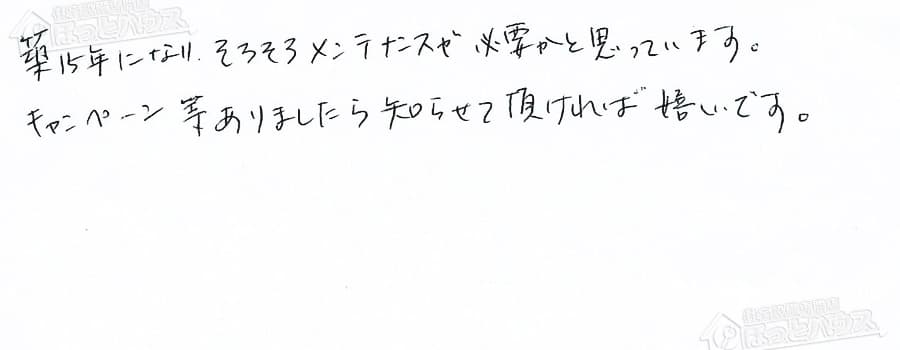 築15年になり、そろそろメンテナンスが必要かと思っています。
キャンペーン等ありましたら知らせて頂ければ嬉いです。
ほっとハウス
ほっとハウス